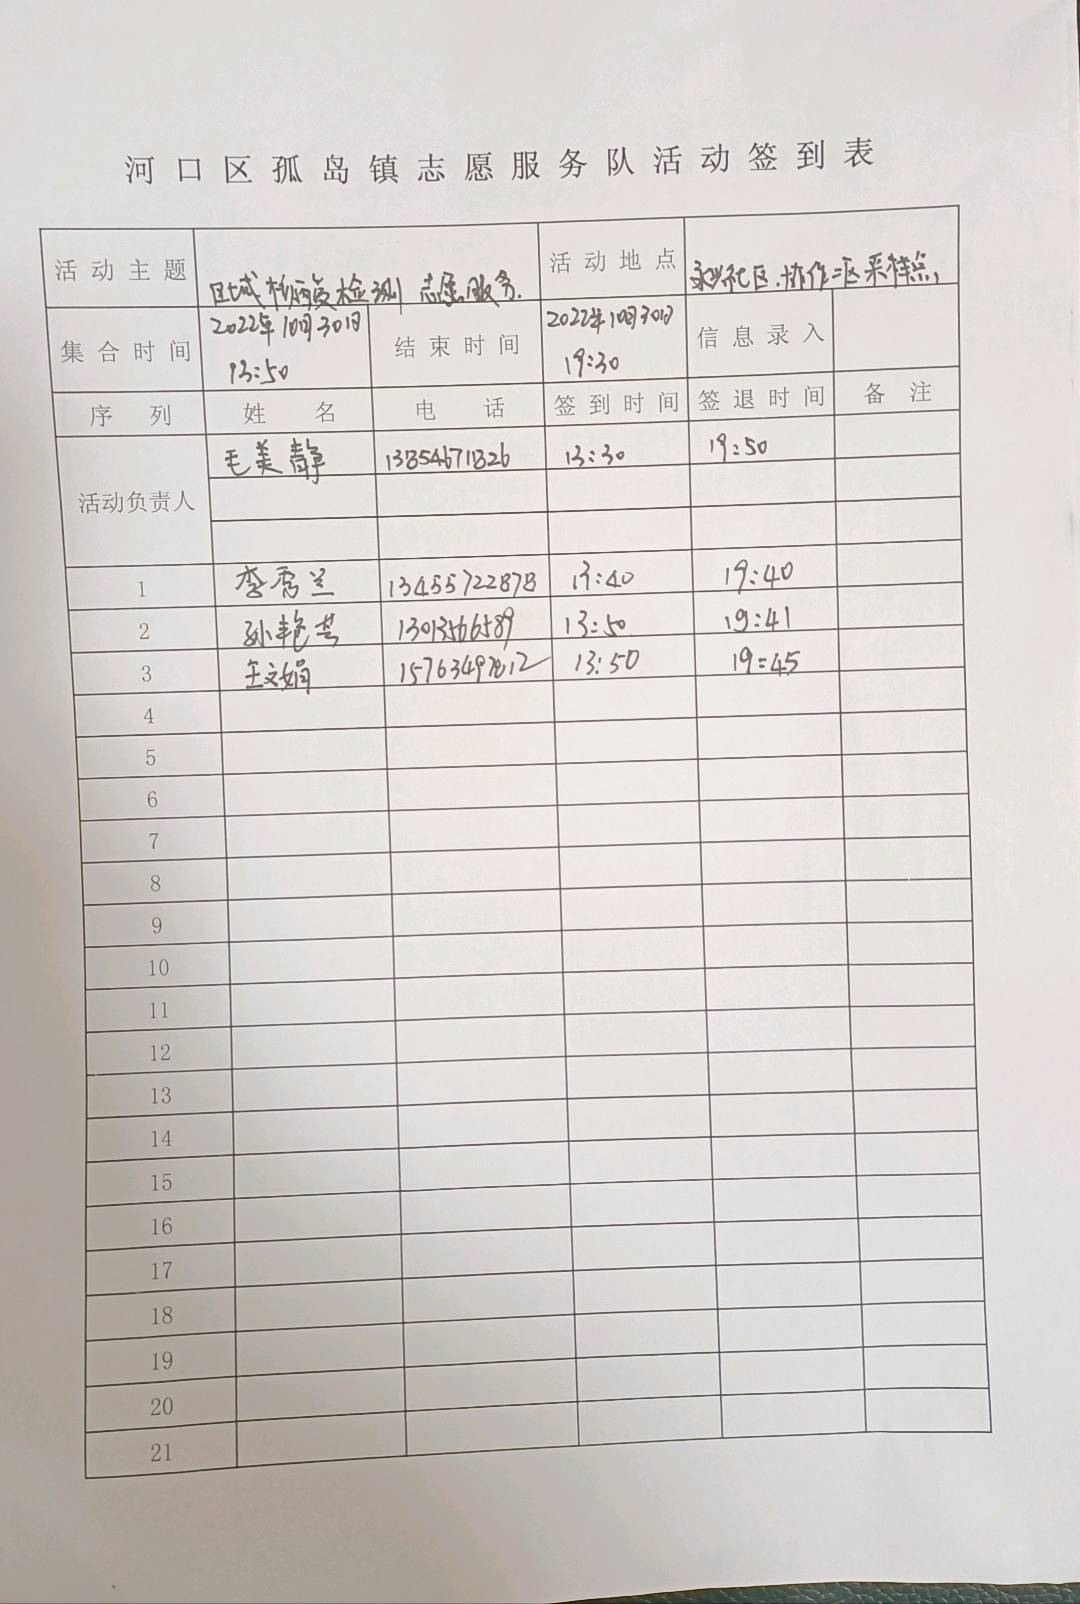 河口区孤岛镇志愿服务队活动签到表
活动主题 区域核酸检测志愿服务. 活动地点 永兴社区.协作二区采样点,
集合时间 2022年10月30日 13:50 结束时间 2022年10月30日 19:30 信息录入
序列 姓名 电话 签到时间 签退时间 备注
活动负责人 毛美静 13854671826 13:30 19:50
1 李秀兰 13455722878 13:40 19:40
2 孙艳 13013566589 13:50 19:41
3 王文娟 13:50 19:45
4
5
6
7
8
9
10
11
12
13
14
15
16
17
18
19
20
21